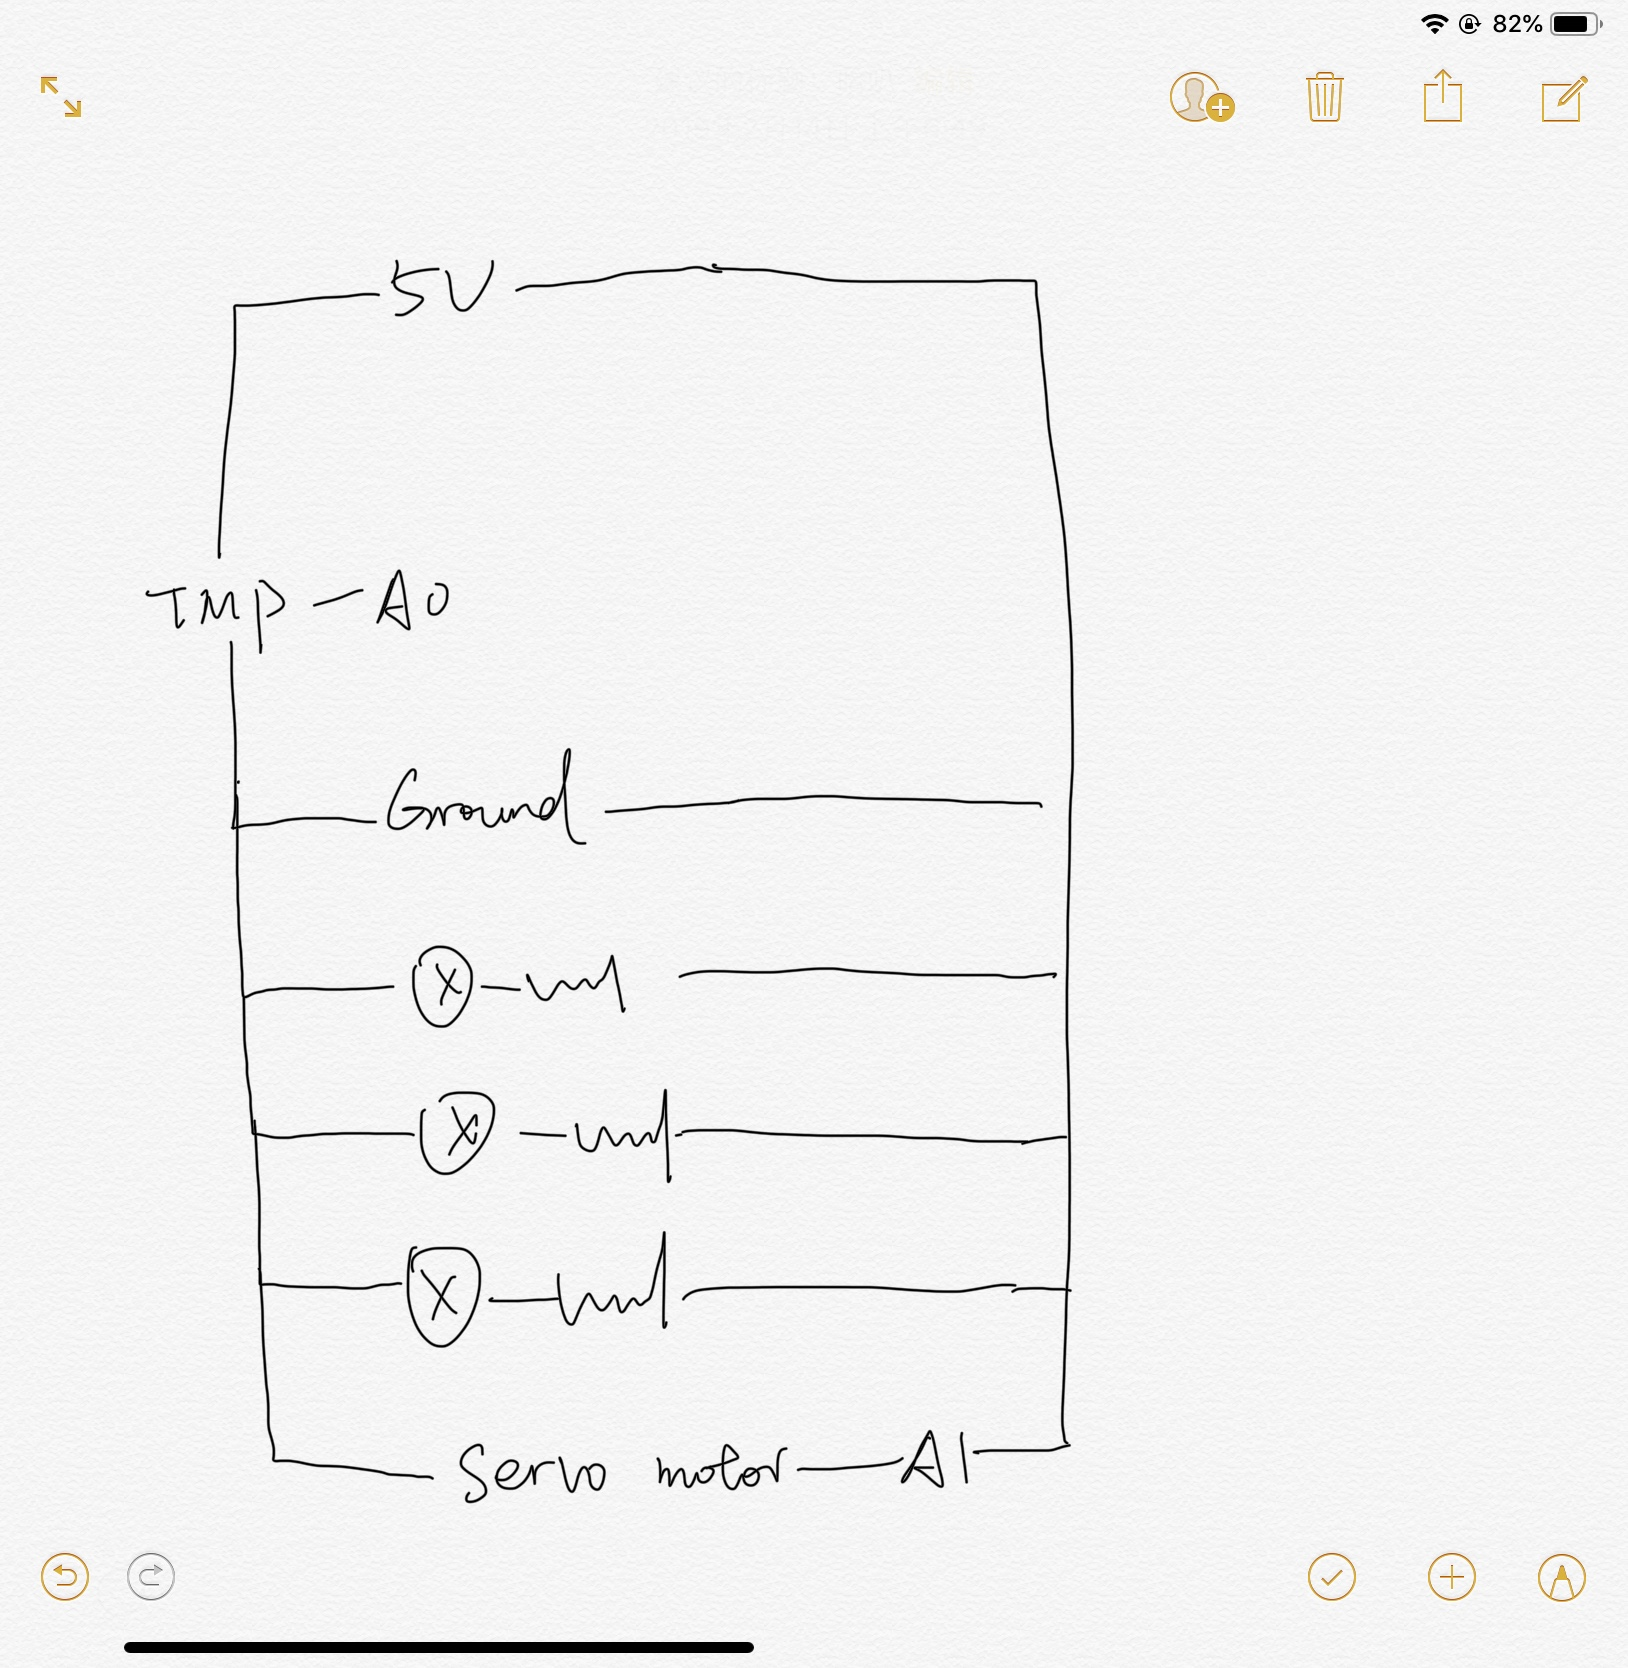 82%
5V
TMP - A0
Ground
Servo motor - A1